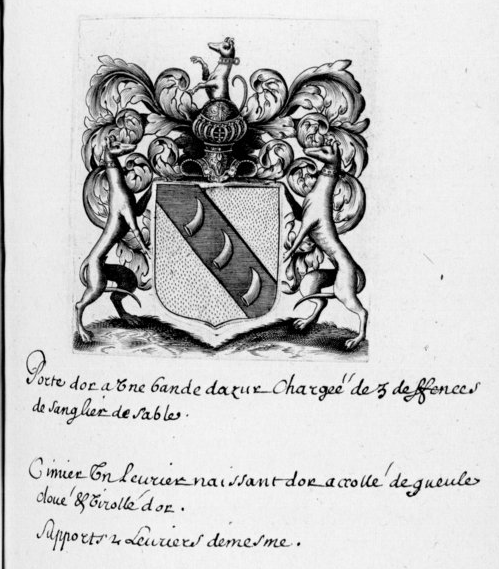 Porte dor a Vne bande dazur Chargeé de 3 deffences
de sanglier de sable.
Cimier Vn Leurier naissant dor accollé de gueule
cloué & virollé dor.
Supports 2 Leuriers de mesme.